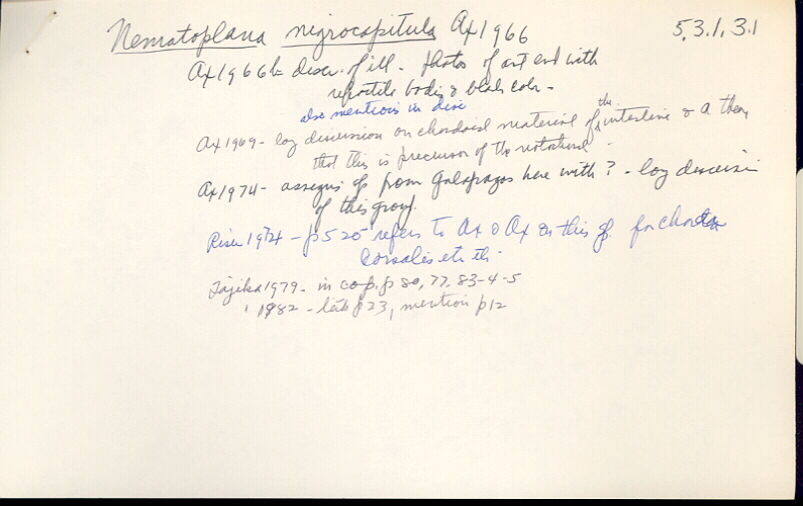 Nematoplana nigrocapitula Ax 1966 5,3.1,3.1
Ax 1966b descr. of ill - photos of ant end with
refractile bodies & black color -
also mentions in disc
Ax 1969 - long discussion on chordoid material of the intestine & a theory
that this is precursor of the notochord -
Ax 1974 - assigns sp from Galapagos here with ? - long discussion
of this group.
Riser 1974 - p 525 refers to Ax & Ax on this sp. for chorda
dorsalis etc
Tajika 1979 - in comp. p 80, 77, 83-4-5
" 1982 - tab p 23, mention p 12